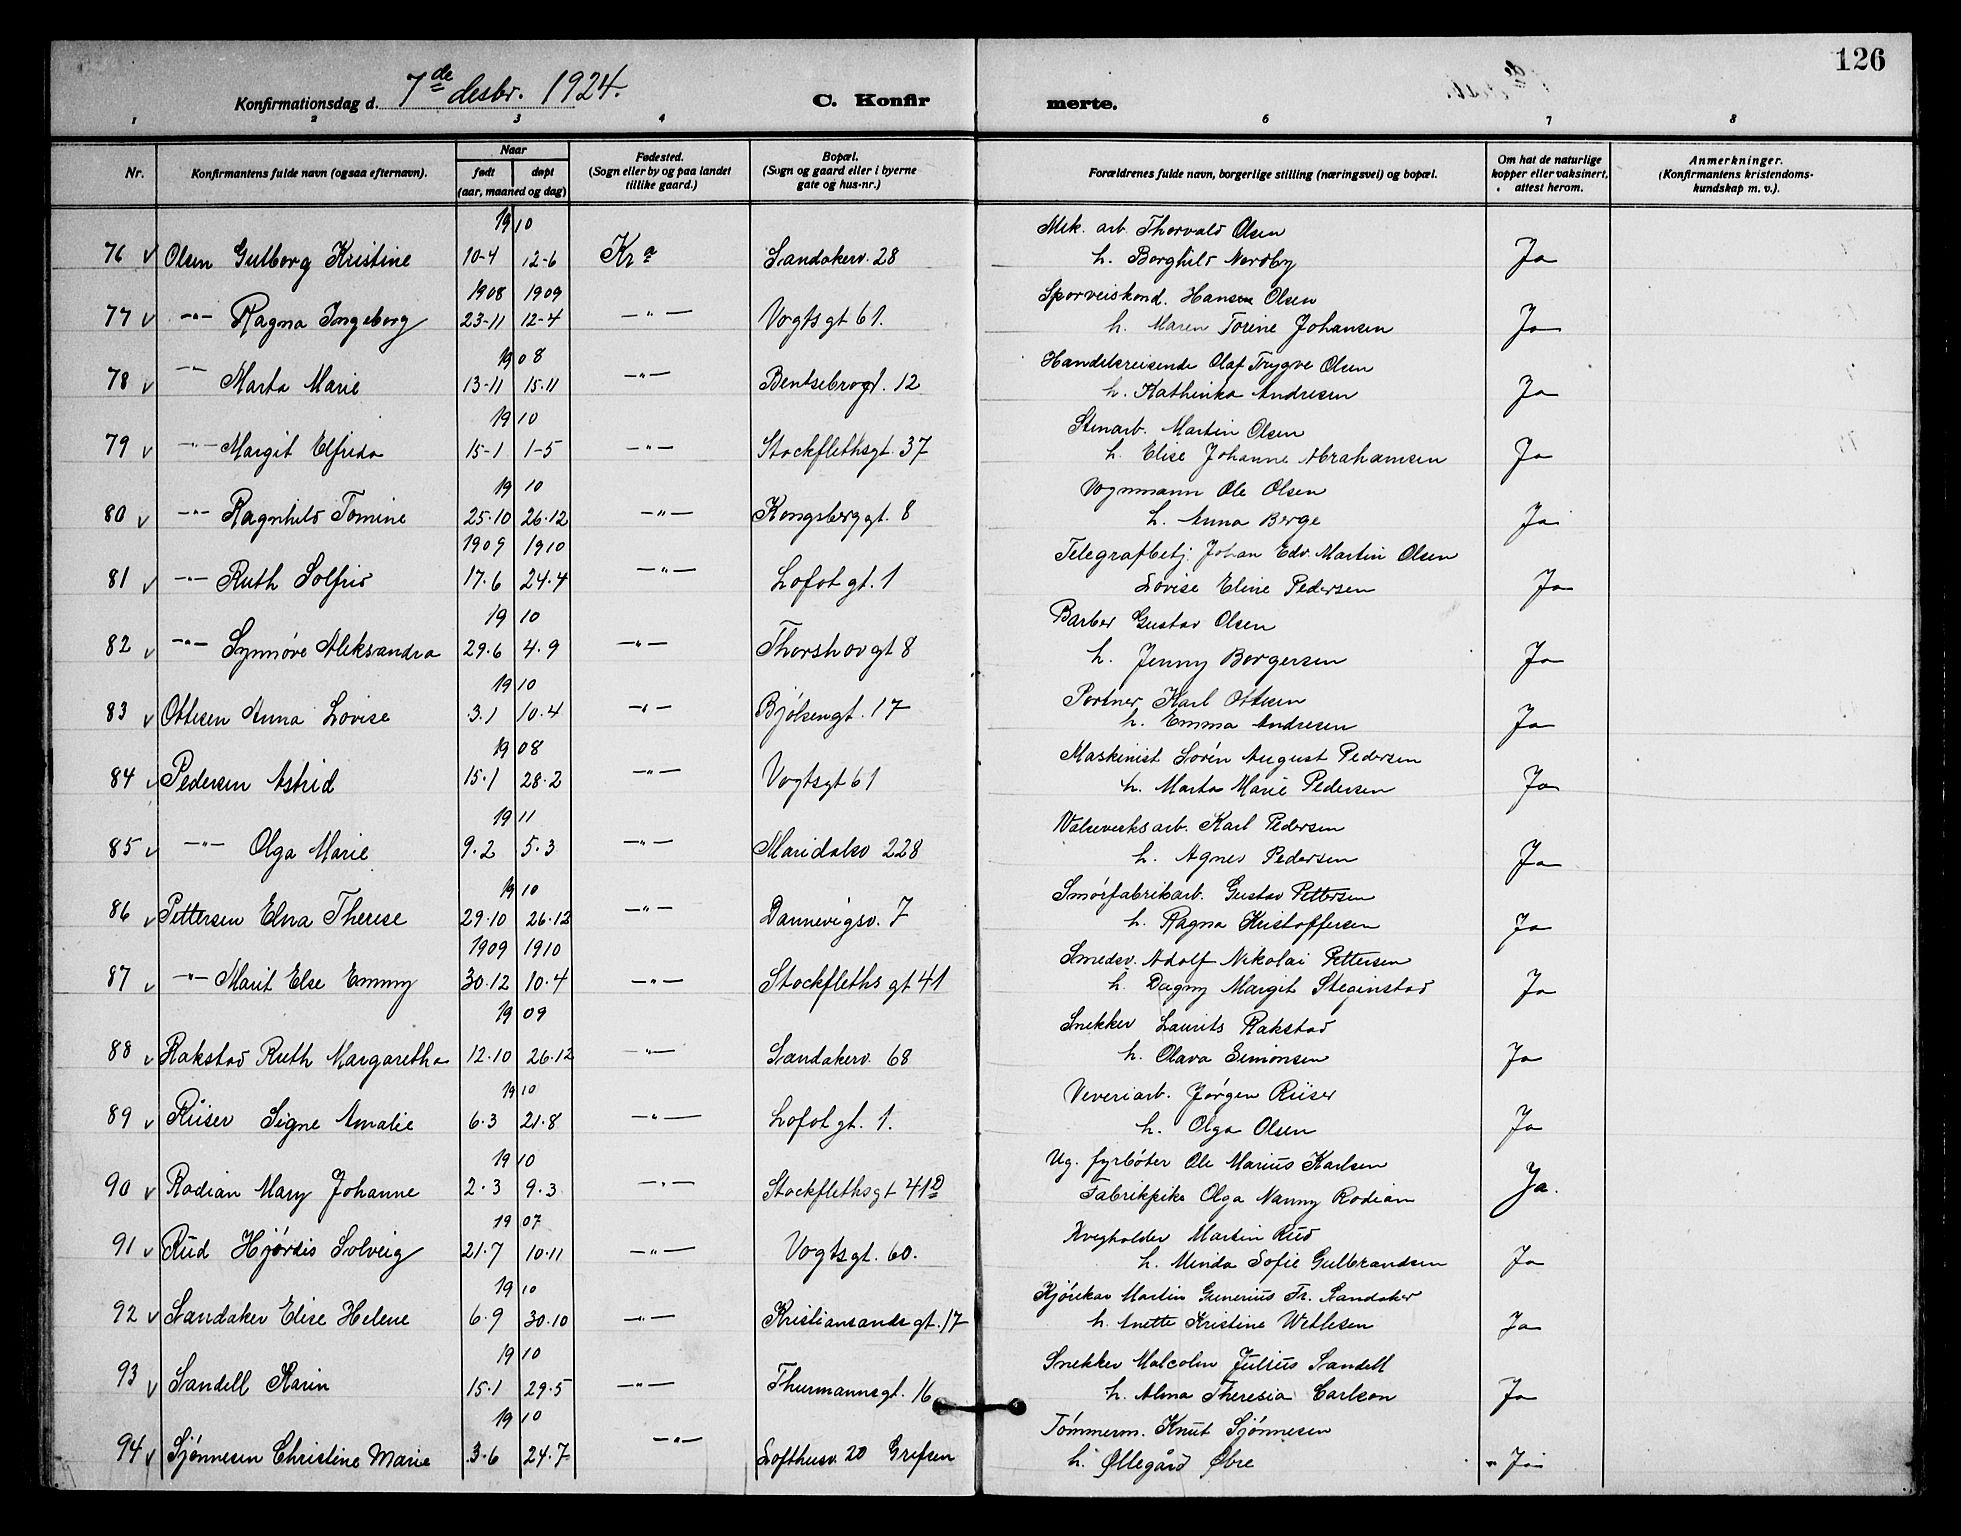 126
Konfirmationsdag d. 7de desbr. 1924.
C. Konfirmerte.
1 2 3 4 6 7 8
Nr. | Konfirmantens fulde navn (ogsaa efternavn). | Naar født døpt (aar, maaned og dag) | Fødested. (Sogn eller by og paa landet tillike gaard.) | Bopæl. (Sogn og gaard eller i byerne gate og hus-nr.) | Forældrenes fulde navn, borgerlige stilling (næringsvei) og bopæl. | Om hat de naturlige kopper eller vaksinert, attest herom. | Anmerkninger. (Konfirmantens kristendomskundskap m. v.).
1910 Mek. arb. Thorvald Olsen
76 v Olsen Gulborg Kristine 10-4 12-6 Kra Sandakerv. 28 h. Borghild Nordby Ja
1908 1909 Sporveiskond. Hansen Olsen
77 v -"- Ragna Ingeborg 23-11 12-4 -"- Vogtsgt 61. h. Maren Torine Johansen Ja
1908 Handelsreisende Olaf Trygve Olsen
78 v -"- Marta Marie 13-11 15.11 -"- Bentsebrogt. 12 h. Kathinka Andresen Ja
1910 Stenarb. Martin Olsen
79 v -"- Margit Elfrida 15-1 1-5 -"- Stockflethsgt. 37 h. Elise Johanne Abrahamsen Ja
1910 Vognmann Ole Olsen
80 v -"- Ragnhild Tomine 25.10 26.12 -"- Kongsberggt. 8 h. Anna Berge Ja
1909 1910 Telegrafbetj. Johan Edv. Martin Olsen
81 v -"- Ruth Solfrid 17.6 24.4 -"- Lofotgt. 1 Lovise Eline Pedersen Ja
1910 Barber Gustav Olsen
82 v -"- Synnøve Aleksandra 29.6 4.9 -"- Thorshovgt 8 h. Jenny Borgersen Ja
1910 Portner Karl Ottesen
83 v Ottesen Anna Lovise 3.1 10.4 -"- Bjølsengt. 17 h. Emma Andresen Ja
1908 Maskinist Sørén August Pedersen
84 v Pedersen Astrid 15.1 28.2 -"- Vogtsgt 61 h. Marta Marie Pedersen Ja
1911 Valseverksarb. Karl Pedersen
85 v -"- Olga Marie 9.2 5.3 -"- Maridalsv 228 h. Agnes Pedersen Ja
1910 Smørfabrikarb. Gustav Pettersen
86 v Pettersen Elna Therese 29.10 26.12 -"- Dannevigsv. 7 h. Ragna Kristoffersen Ja
1909 1910 Smedsv. Adolf Nikolai Pettersen
87 v -"- Marit Else Emmy 30.12 10.4 -"- Stockflethsgt 41 h. Dagny Margit Steginstad Ja
1909 Snekker Laurits Rakstad
88 v Rakstad Ruth Margaretha 12.10 26.12 -"- Sandakerv. 68 h. Olava Simonsen Ja
1910 Veveriarb. Jørgen Riiser
89 v Riiser Signe Amalie 6.3 21.8 -"- Lofotgt. 1. h. Olga Olsen Ja
1910 Ug. fyrbøter Ole Marius Karlsen
90 v Rodian Mary Johanne 2.3 9.3 -"- Stockflethsgt 41D Fabrikpike Olga Nanny Rodian Ja.
1907 Kvegholder Martin Rud
91 v Rud Hjørdis Solveig 21.7 10.11 -"- Vogtsgt. 60. h. Minda Sofie Gulbrandsen Ja
1910 Kjørekar Martin Grenerius Fr. Sandaker
92 v Sandaker Elise Helene 6.9 30.10 -"- Kristiansandsgt. 17 h. Anette Kristine Wetlesen Ja
1910 Snekker Malcolm Julius Sandell
93 v Sandell Karin 15.1 29.5 -"- Thurmannsgt. 16 h. Alma Theresia Carlson Ja
1910 Tømmerm. Knut Sjønnesen
94 v Sjønnesen Christine Marie 3.6 24.7 -"- Lofthusv. 20 Grefsen h. Øllegård Øbre Ja